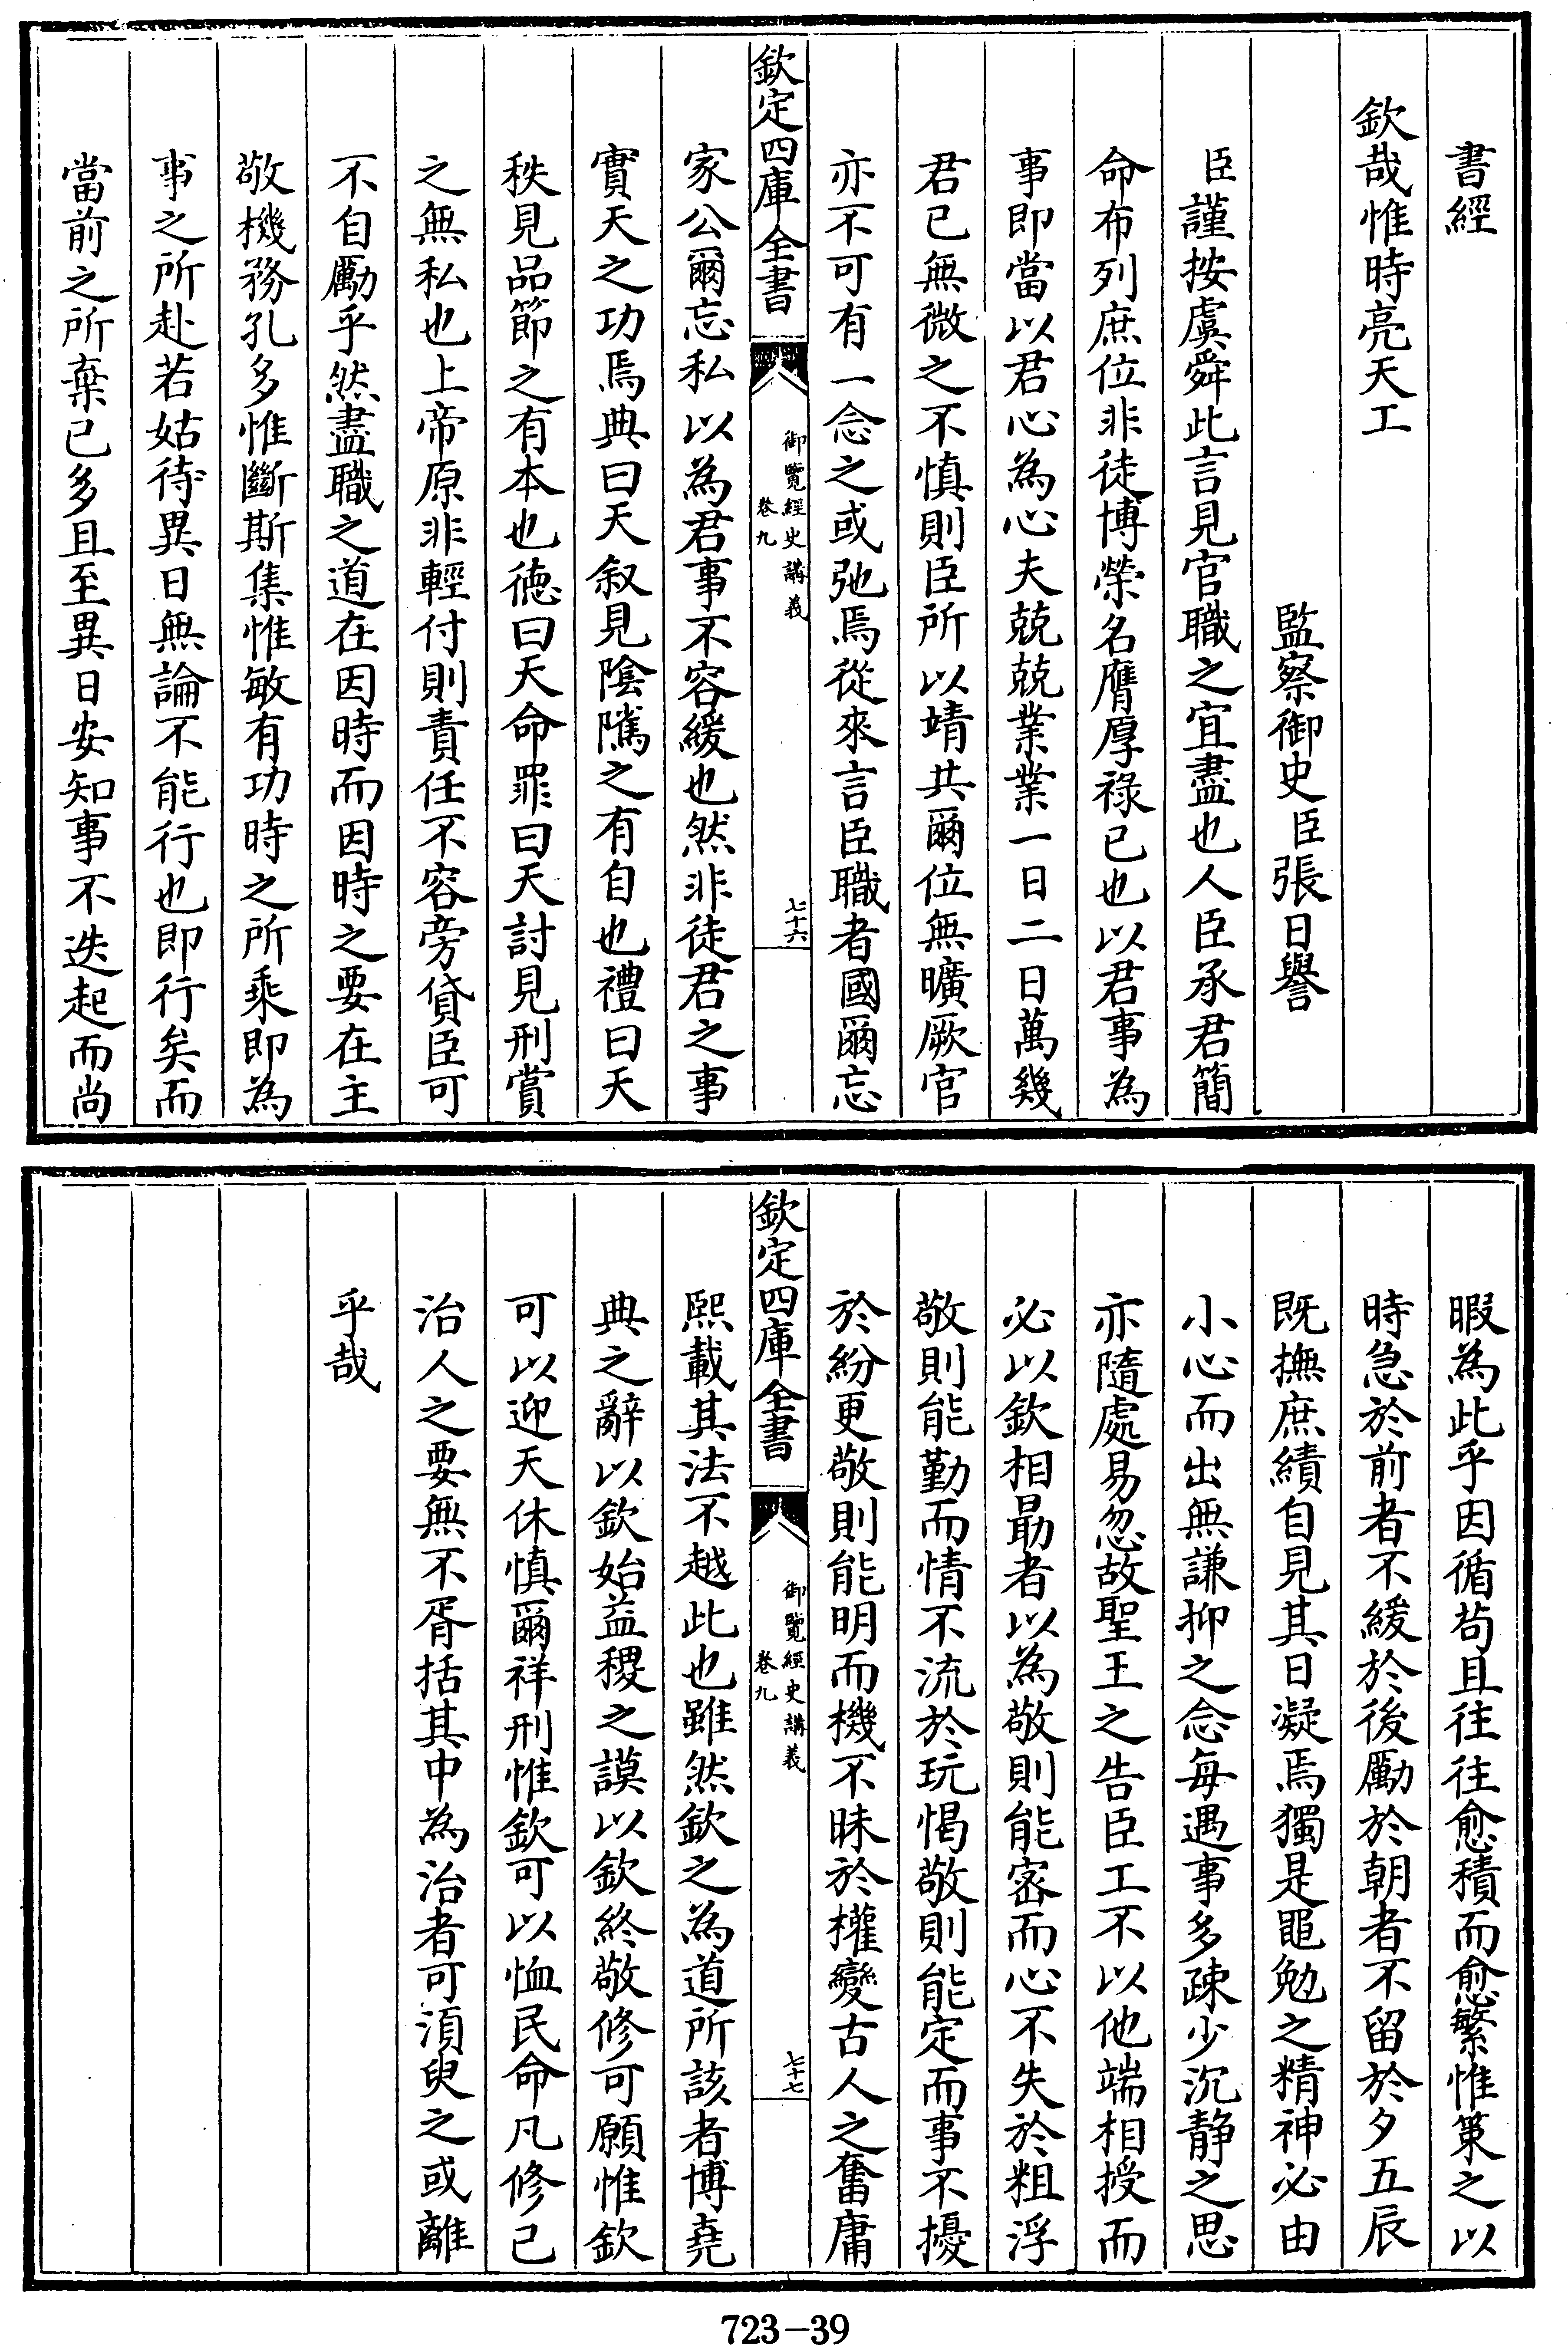 書經
欽哉惟時亮天工
監察御史臣張日譽
臣謹按虞舜此言見官職之宜盡也人臣承君簡
命布列庶位非徒博榮名膺厚祿已也以君事為
事即當以君心為心夫兢兢業業一日二日萬幾
君已無微之不慎則臣所以靖共爾位無曠厥官
亦不可有一念之或弛焉從來言臣職者國爾忘
欽定四庫全書
御覽經史講義
卷九
七十六
家公爾忘私以為君事不容緩也然非徒君之事
實天之功焉典曰天叙見陰隲之有自也禮曰天
秩見品節之有本也徳曰天命罪曰天討見刑賞
之無私也上帝原非輕付則責任不容旁貸臣可
不自勵乎然盡職之道在因時而因時之要在主
敬機務孔多惟斷斯集惟敏有功時之所乘即為
事之所赴若姑待異日無論不能行也即行矣而
當前之所棄已多且至異日安知事不迭起而尚
暇為此乎因循茍且往往愈積而愈繁惟策之以
時急於前者不緩於後勵於朝者不留於夕五辰
既撫庶績自見其日凝焉獨是黽勉之精神必由
小心而出無謙抑之念每遇事多疎少沉静之思
亦隨處易忽故聖王之告臣工不以他端相授而
必以欽相勗者以為敬則能密而心不失於粗浮
敬則能勤而情不流於玩愒敬則能定而事不擾
於紛更敬則能明而機不昧於權變古人之奮庸
欽定四庫全書
御覽經史講義
卷九
七十七
熙載其法不越此也雖然欽之為道所該者博堯
典之辭以欽始益稷之謨以欽終敬修可願惟欽
可以迎天休慎爾祥刑惟欽可以恤民命凡修已
治人之要無不胥括其中為治者可須臾之或離
乎哉
723-39